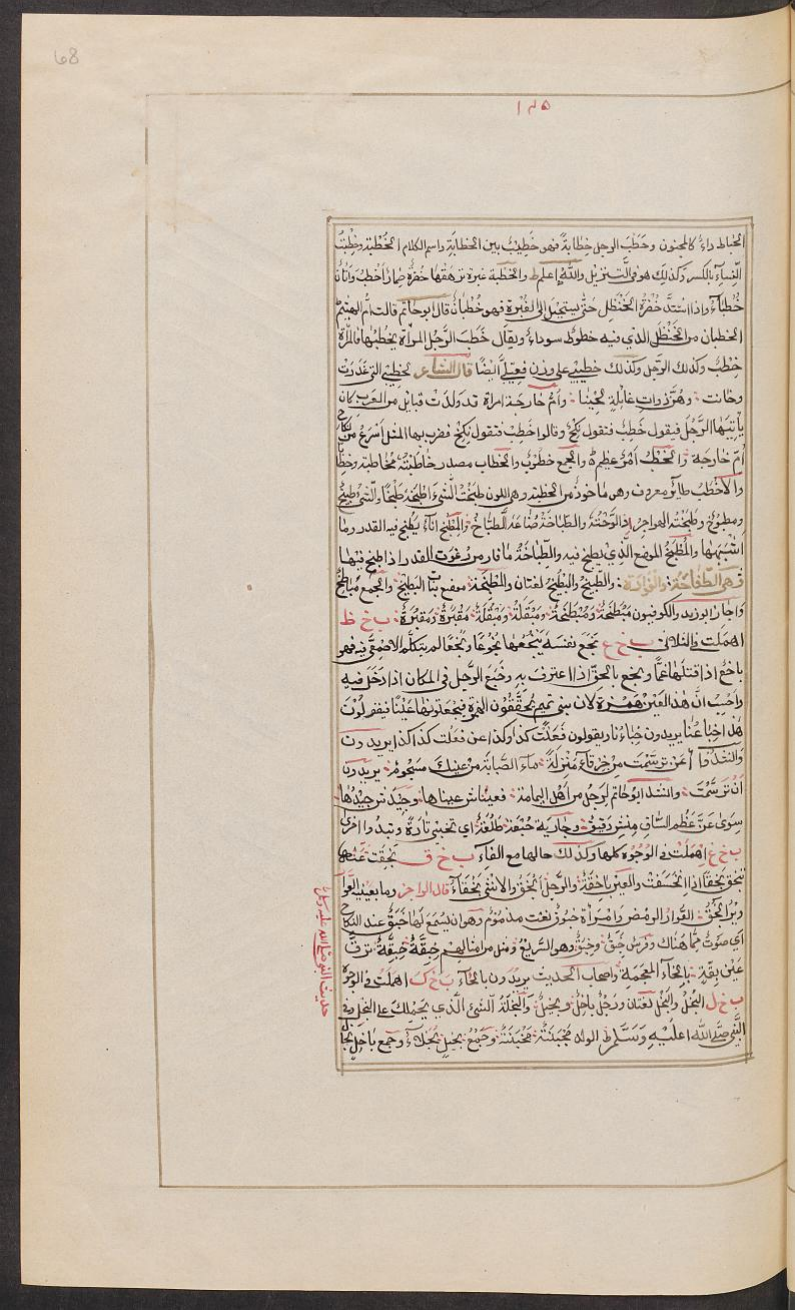 68
١٣٥
الخباط داءٌ كالمجنون وخَطَبَ الرجل خِطابةً فهو خَطِيبٌ بين الخطابَةِ واسم الكلام الخُطْبَة وخِطْبَتُ
النِّساء بالكسر وكذلك هو في التنزيل والله اعلم والخطبة غبرة ترهقها خضرة حمار اَخْطَبُ واَتان
خُطباءُ واذا اشتدَّ خُضْرَةُ الحنْظَلِ حَتّى يستحيل الى الغُبْرة فهو خُطبانٌ قال ابو حاتم قالت امّ الهيثم
الخطبان من الحَنْظَلِ الذي فيه خطوطٌ سوداءُ ويقال خَطَبَ الرَّجُلُ المراَةَ يخطُبُها فالمراَةُ
خِطْبٌ وكذلك الرَّجل وكذلك خطيبي على وزن فعيلي ايضًا قال الشاعر لخطيبي التي غدرت
وخانت وهنّ ذوات غائلة لحينا وامّ خارجة امراة قد ولدت قبايل من العرب كان
ياتيها الرَّجُل فيقول خِطْبٌ فتقول نِكْحٌ وقالوا خطب فتقول نكح فضرب بها المثل اَسرَعُ من نكاح
اُمّ خارجة والخَطْبُ اَمْرٌ عظيم والجمع خطوب والخطاب مصدر خاطَبْتُهُ مخاطبة وخطا
والاَخْطَبُ طاير معروف وهو ماخوذ من الخطبة وهي اللون طبختُ الشيءَ اَطْبُخُهُ طَبْخًا والشئ طبيخ
ومطبوخ وطبخته الهواجر والطباخة صناعة الطَّبَّاخ والمِطْبخ اناءٌ يُطْبخ فيه القدر وما
اشبهها والمَطْبَخُ الموضع الَّذي يطبخ فيه والطُّباخَةُ ما فار من رغوة القدر اذا طبخ فيها
فهي الطُّفاحة والفوارة والطِّبِّيخُ والبِطِّيخُ لغتان والمَطْبَخة موضع نبات البطيخ والجمع مباطخ
واجاز ابو زيد والكوفيون مَبْطَخة ومَبْطُخة ومَبْقَلةٌ ومَبْقُلةٌ مَقْبَرةٌ ومَقْبُرَةٌ ب خ ظ
اهملت والثلاثي ب خ ع بخع نفسه يبخعها بخوعًا وبخعًا لم يتكلّم الاصمعي فيه فهو
باخع اذا قتلها غمًّا وبخع بالحق اذا اعترف به وخبع الرَّجل في المكان اذا دخل فيه
واحسب انَّ هذا العين همزة لان بني تميم يحققون الهمزة فيجعلونها عينًا فيقولون
هذا خباعنا يريدون خباءنا ويقولون فعلت كذا وكذا عن فعلت كذا كذا يريدون
وانشدوا اَعَنْ ترسّمت من خرقاء منزلة ماء الصّبابة من عينيك مسجوم يريدون
اَنْ ترسّمت وانشد ابو حاتم لرجل من اهل اليمامة فعيناش عيناها وجيدش جيدها
سِوَى عَنَّ عَظْم الساق مِنشِ دقيق وجارية خُبَعَة طُلَعَة اي تختبئ تارةً وتبدوا اخرى
ب خ غ اهملت في الوجوه كلها وكذلك حالها مع الفاء ب خ ق بخقت عَيْنُه
تبخق بخقًا اذا انخسفت والعين باخقة والرَّجل ابخق والانثى بخقاءُ قال الراجز وما بعينيه عواوير البخق
العوّار الرمض وامراة خبوق نعت مذموم وهو ان يُسمع لها خَبْقٌ عند النكاح
اي صَوْتٌ ممّا هناك وفرس خِبَقّ وخِبِقّ وهو السَّريع ومثل من امثالهم خِبِقَّةٌ خِبِقَّهْ ترقّ
عين بقّه بالخاء المعجمة واصحاب الحديث يريدون بالحاء ب خ ك اهملت في الوجوه
ب خ ل البُخْلُ والبَخَلُ لغتان ورجُلٌ باخلٌ وبخيلٌ والبَخْلَةُ الشئ الَّذي يحملك على البخل وفي
النَّبيّ صلَّى الله عليه وسلَّم الولد مَجْبَنَةٌ مَبْخَلَةٌ وجَمْعُ بخيلٍ بُخَلاءُ وجمع باخلٍ بُخَّال
حديث النبي صلى الله عليه وسلم